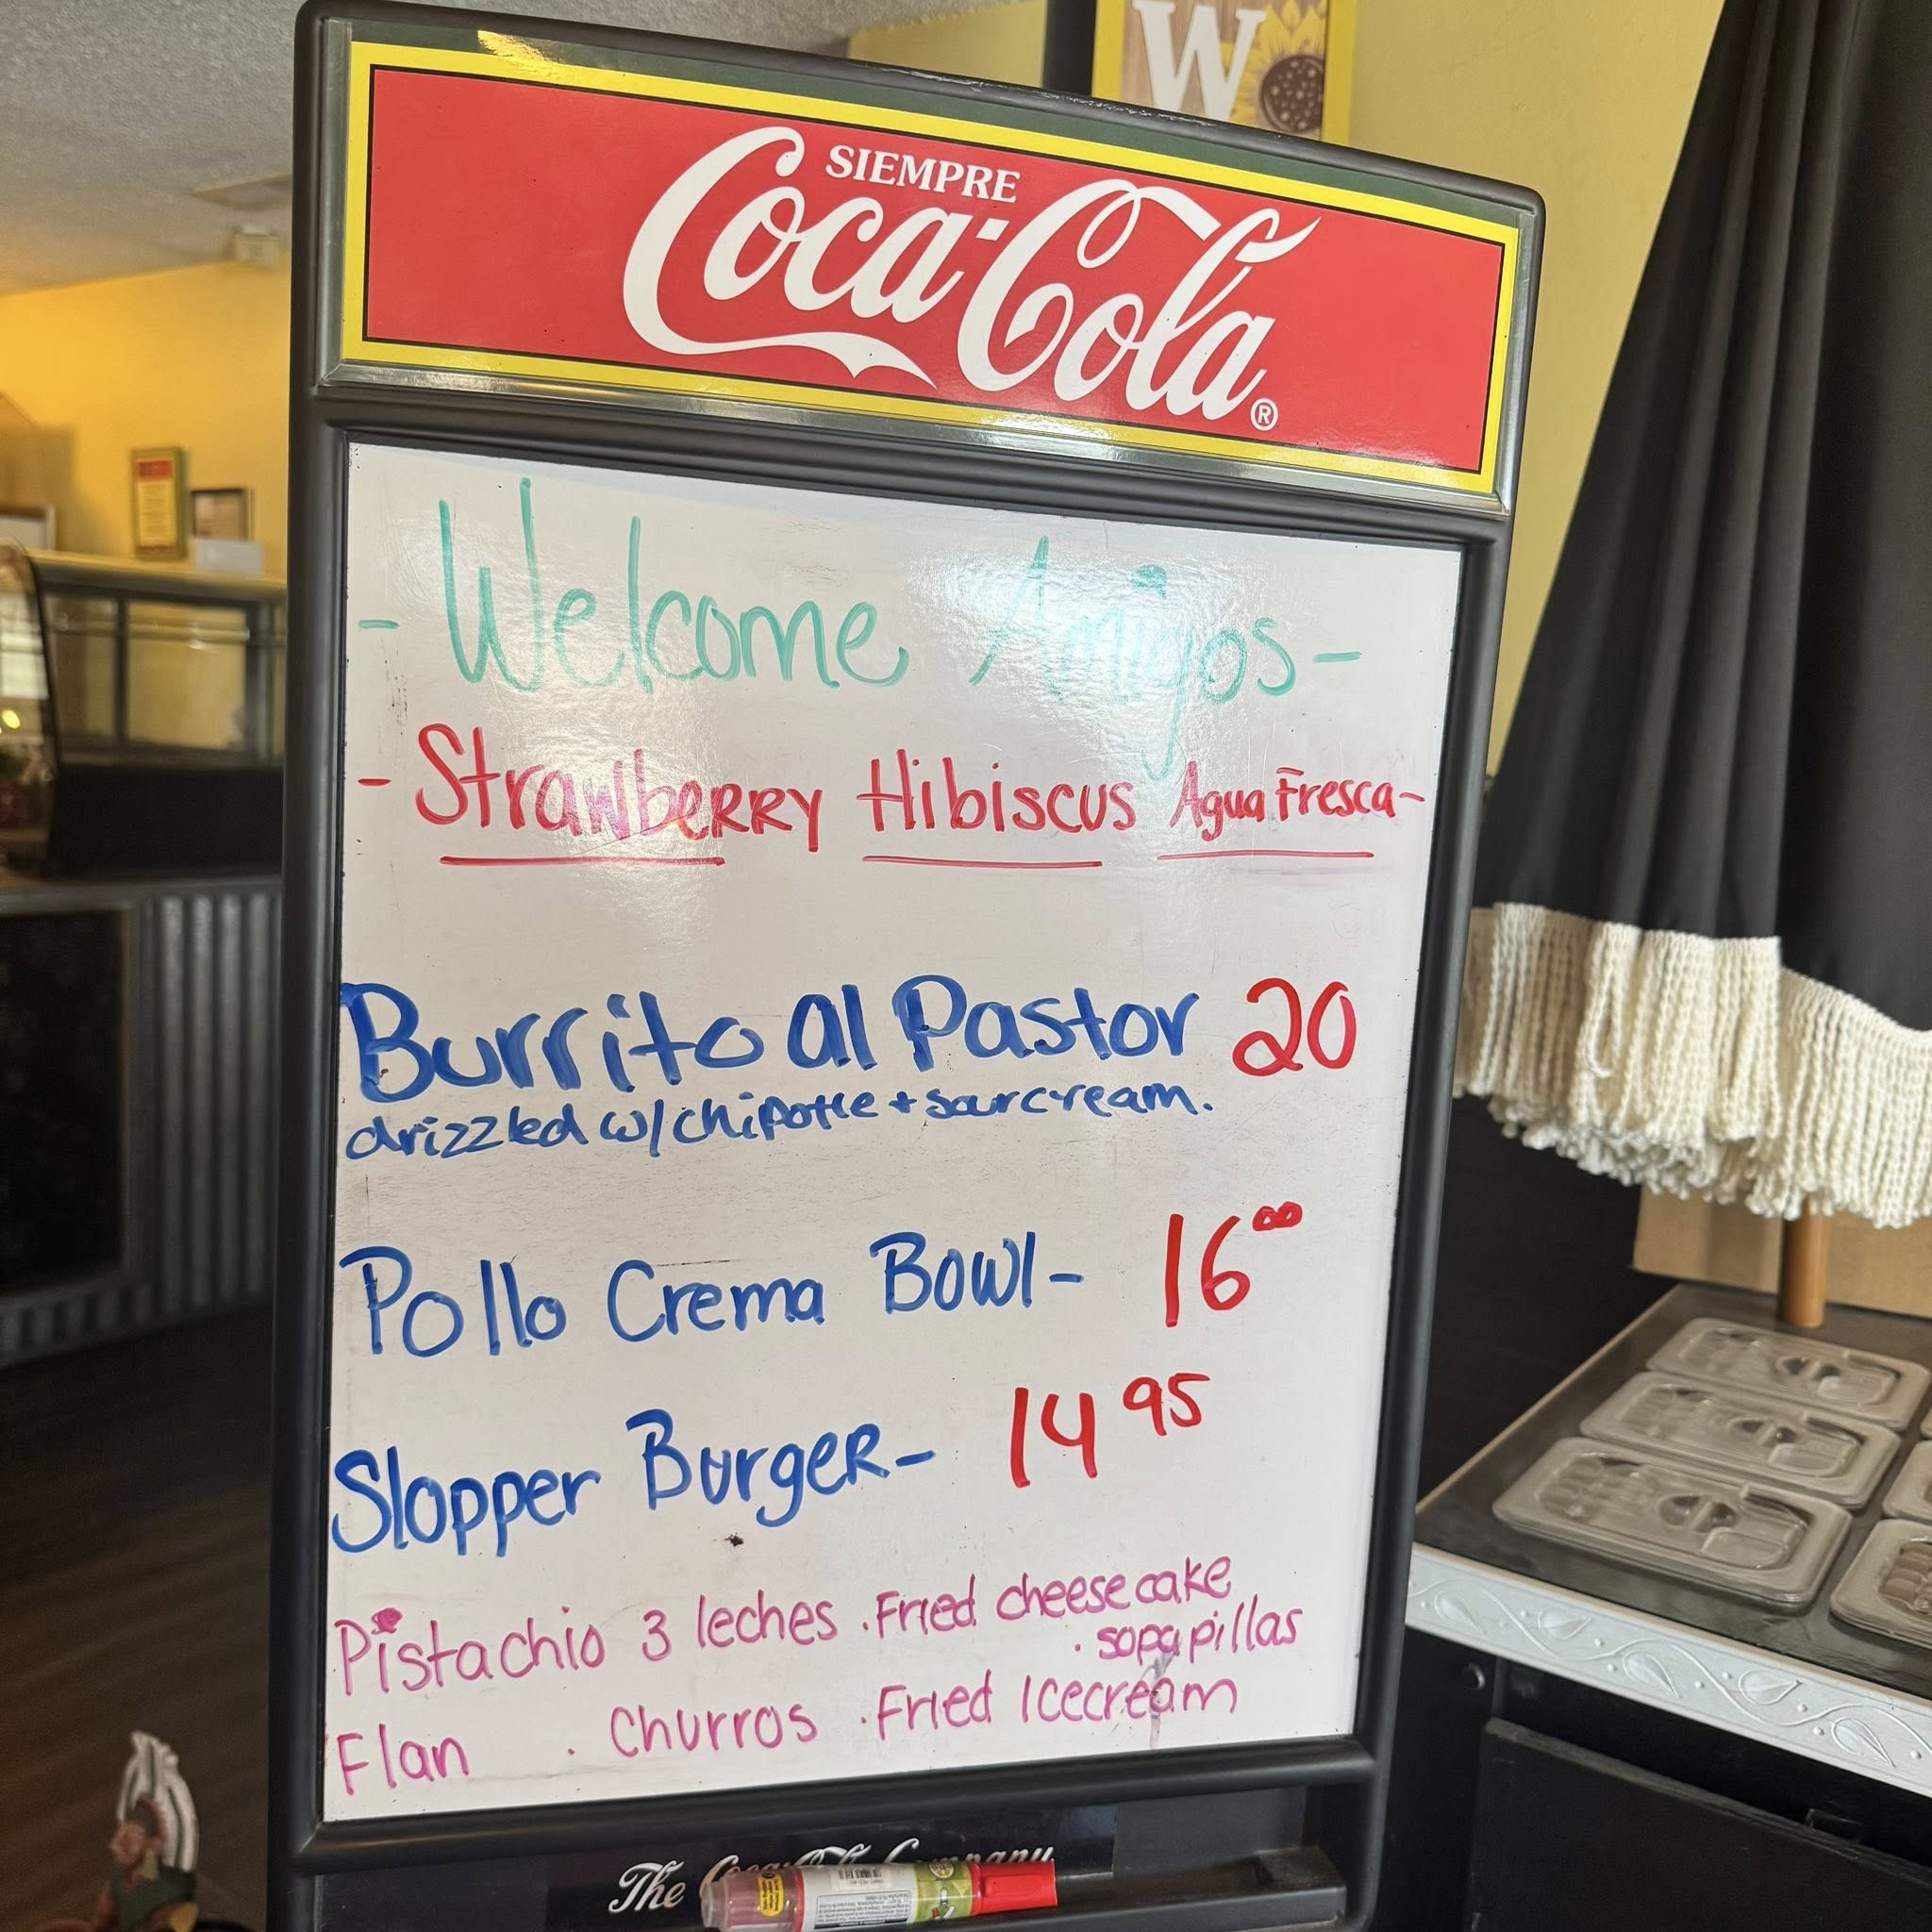 W
SIEMPRE
Coca-Cola®
- Welcome Amigos -
- Strawberry Hibiscus Agua Fresca -
Burrito al Pastor 20
drizzled w/ chipotle + sour cream.
Pollo Crema Bowl - 16⁰⁰
Slopper Burger - 14⁹⁵
Pistachio 3 leches . Fried cheese cake
. sopapillas
Flan . Churros . Fried Icecream
The Coca-Cola Company